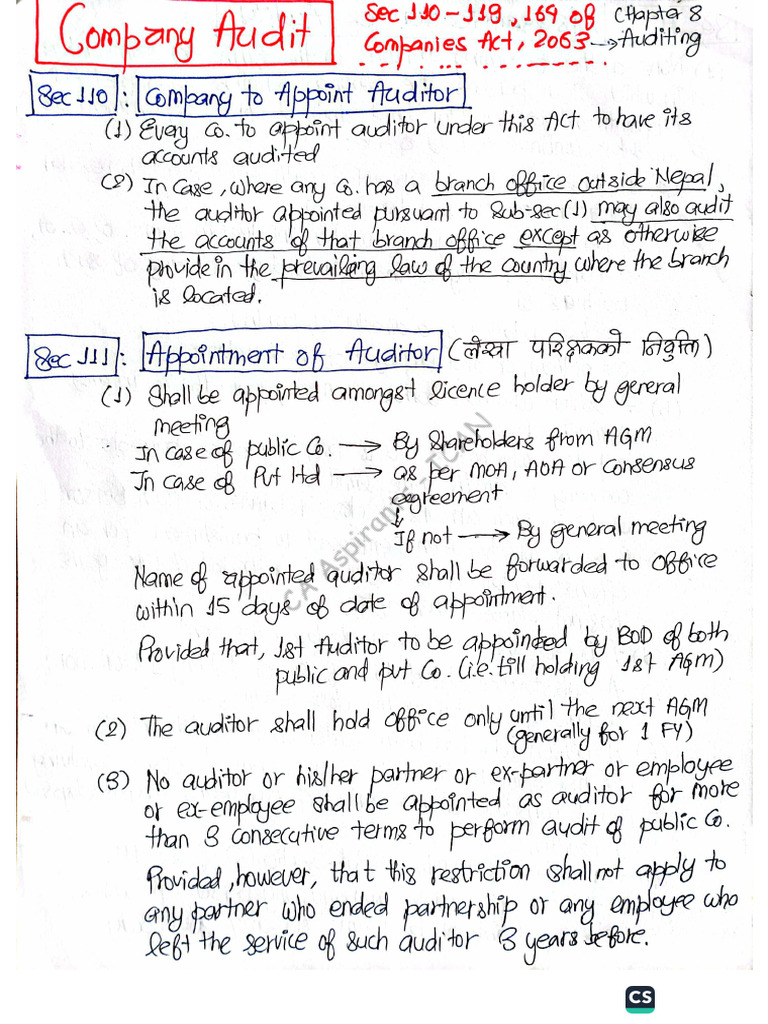 Company Audit
Sec 110-119, 169 of
Companies Act, 2063
Chapter 8
→ Auditing
Sec 110 : Company to Appoint Auditor
(1) Every Co. to appoint auditor under this Act to have its
accounts audited
(2) In case, where any Co. has a branch office outside Nepal,
the auditor appointed pursuant to sub-sec(1) may also audit
the accounts of that branch office except as otherwise
provide in the prevailing law of the country where the branch
is located.
Sec 111 : Appointment of Auditor (लेखा परिक्षकको नियुक्ति)
(1) Shall be appointed amongst licence holder by general
meeting
In case of public Co. → By Shareholders from AGM
In case of Pvt Ltd → as per MOA, AOA or Consensus
agreement
↓
If not → By general meeting
Name of appointed auditor shall be forwarded to office
within 15 days of date of appointment.
Provided that, 1st Auditor to be appointed by BOD of both
public and pvt Co. (i.e. till holding 1st AGM)
(2) The auditor shall hold office only until the next AGM
(generally for 1 FY)
(3) No auditor or his/her partner or ex-partner or employee
or ex-employee shall be appointed as auditor for more
than 3 consecutive terms to perform audit of public Co.
Provided, however, that this restriction shall not apply to
any partner who ended partnership or any employee who
left the service of such auditor 3 years before.
CA Aspirants_ICAN
CS